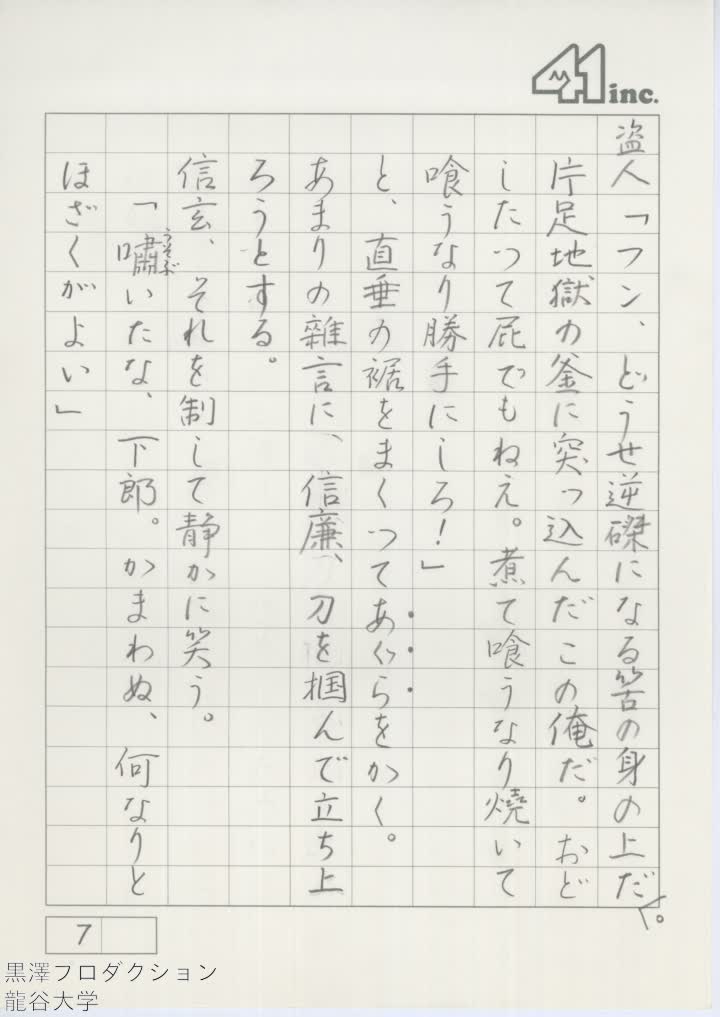 41 inc.
盗人「フン、どうせ逆磔になる筈の身の上だ。
片足地獄の釜に突っ込んだこの俺だ。おど
したつて屁でもねえ。煮て喰うなり燒いて
喰うなり勝手にしろ！」
と、直垂の裾をまくつてあぐらをかく。
あまりの雜言に、信廉、刀を掴んで立ち上
ろうとする。
信玄、それを制して静かに笑う。
「嘯いたな、下郎。かまわぬ、何なりと
うそぶ
ほざくがよい」
7
黒澤プロダクション
龍谷大学